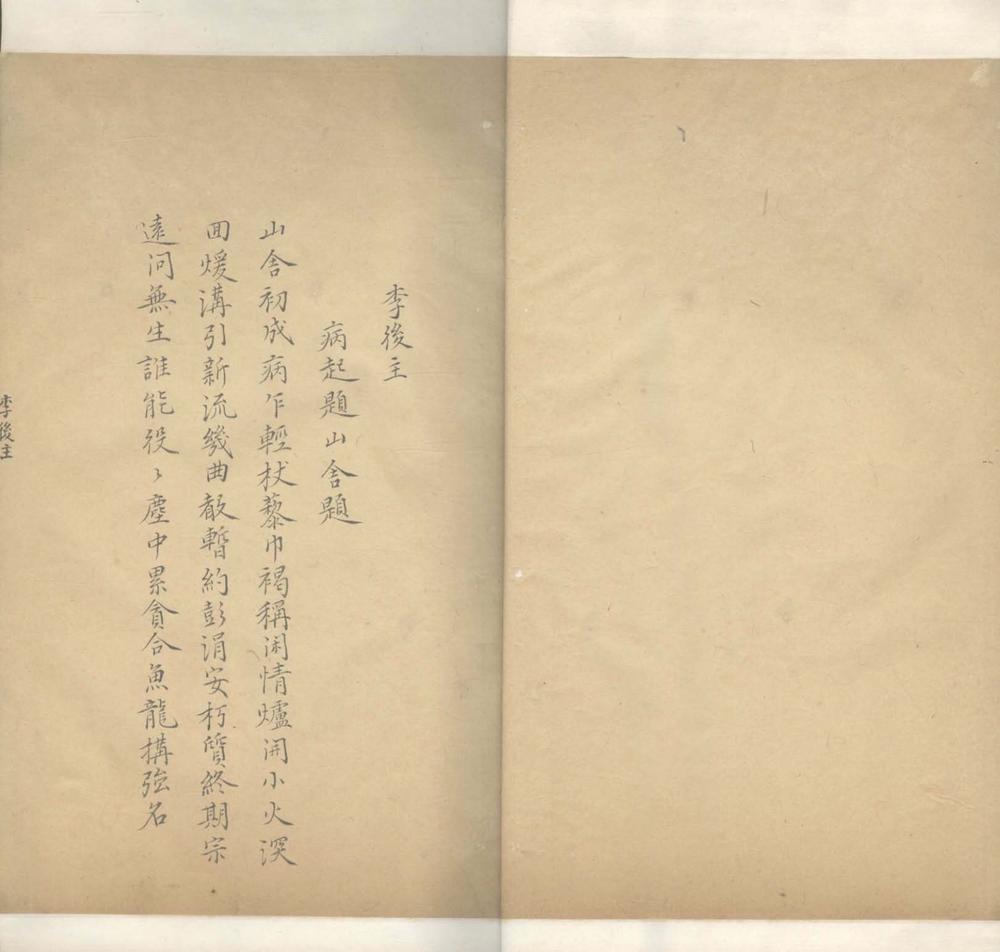 李後主
病起題山舍題
山舍初成病乍輕杖藜巾褐稱閑情爐開小火深
回煖溝引新流幾曲殸暫約彭涓安朽質終期宗
遠問無生誰能役〻塵中累貪合魚龍搆強名
李後主